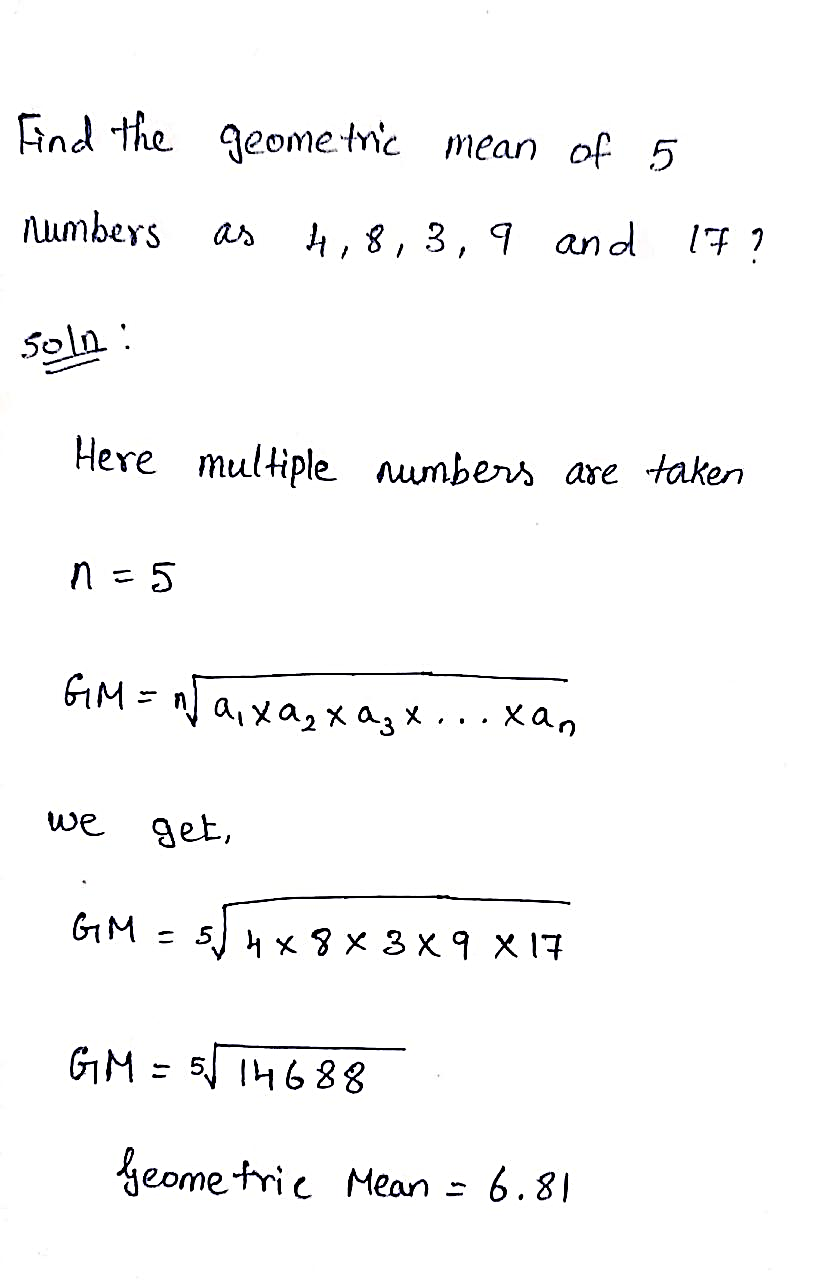 Find the geometric mean of 5
numbers as 4, 8, 3, 9 and 17 ?
soln :
Here multiple numbers are taken
n = 5
GM = ⁿ√a₁ x a₂ x a₃ x ... x aₙ
we get,
GM = ⁵√4 x 8 x 3 x 9 x 17
GM = ⁵√14688
Geometric Mean = 6.81